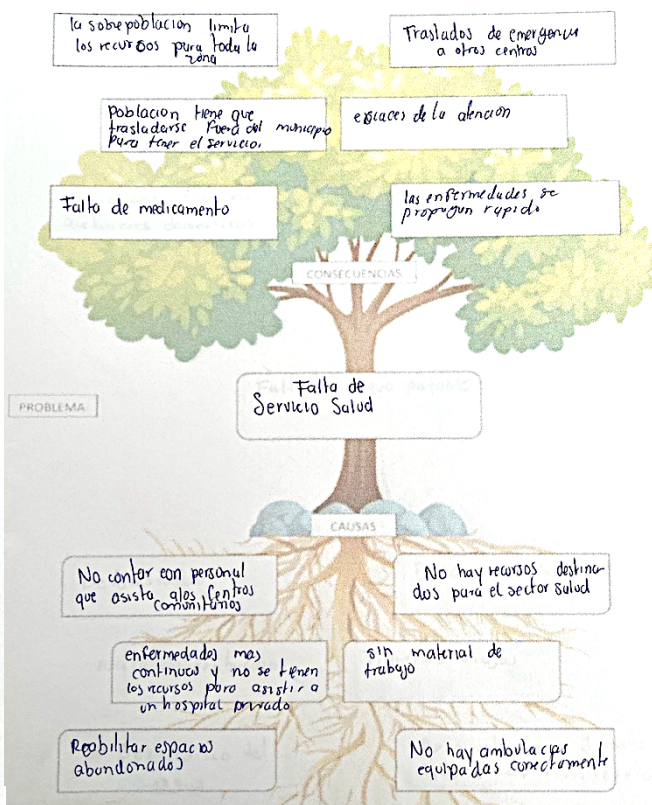 la sobrepoblacion limita
los recursos para toda la
zona
Traslados de emergencia
a otros centros
Poblacion tiene que
trasladarse fuera del municipio
para tener el servicio.
escaces de la atencion
Falta de medicamento
las enfermedades se
propagan rapido
CONSECUENCIAS
Falta de
Servicio Salud
PROBLEMA
CAUSAS
No contar con personal
que asista a los Centros
Comunitarios
No hay recursos destina
dos para el sector salud
enfermedades mas
continuas y no se tienen
los recursos para asistir a
un hospital privado
sin material de
trabajo
Reabilitar espacios
abandonados
No hay ambulacias
equipadas correctamente